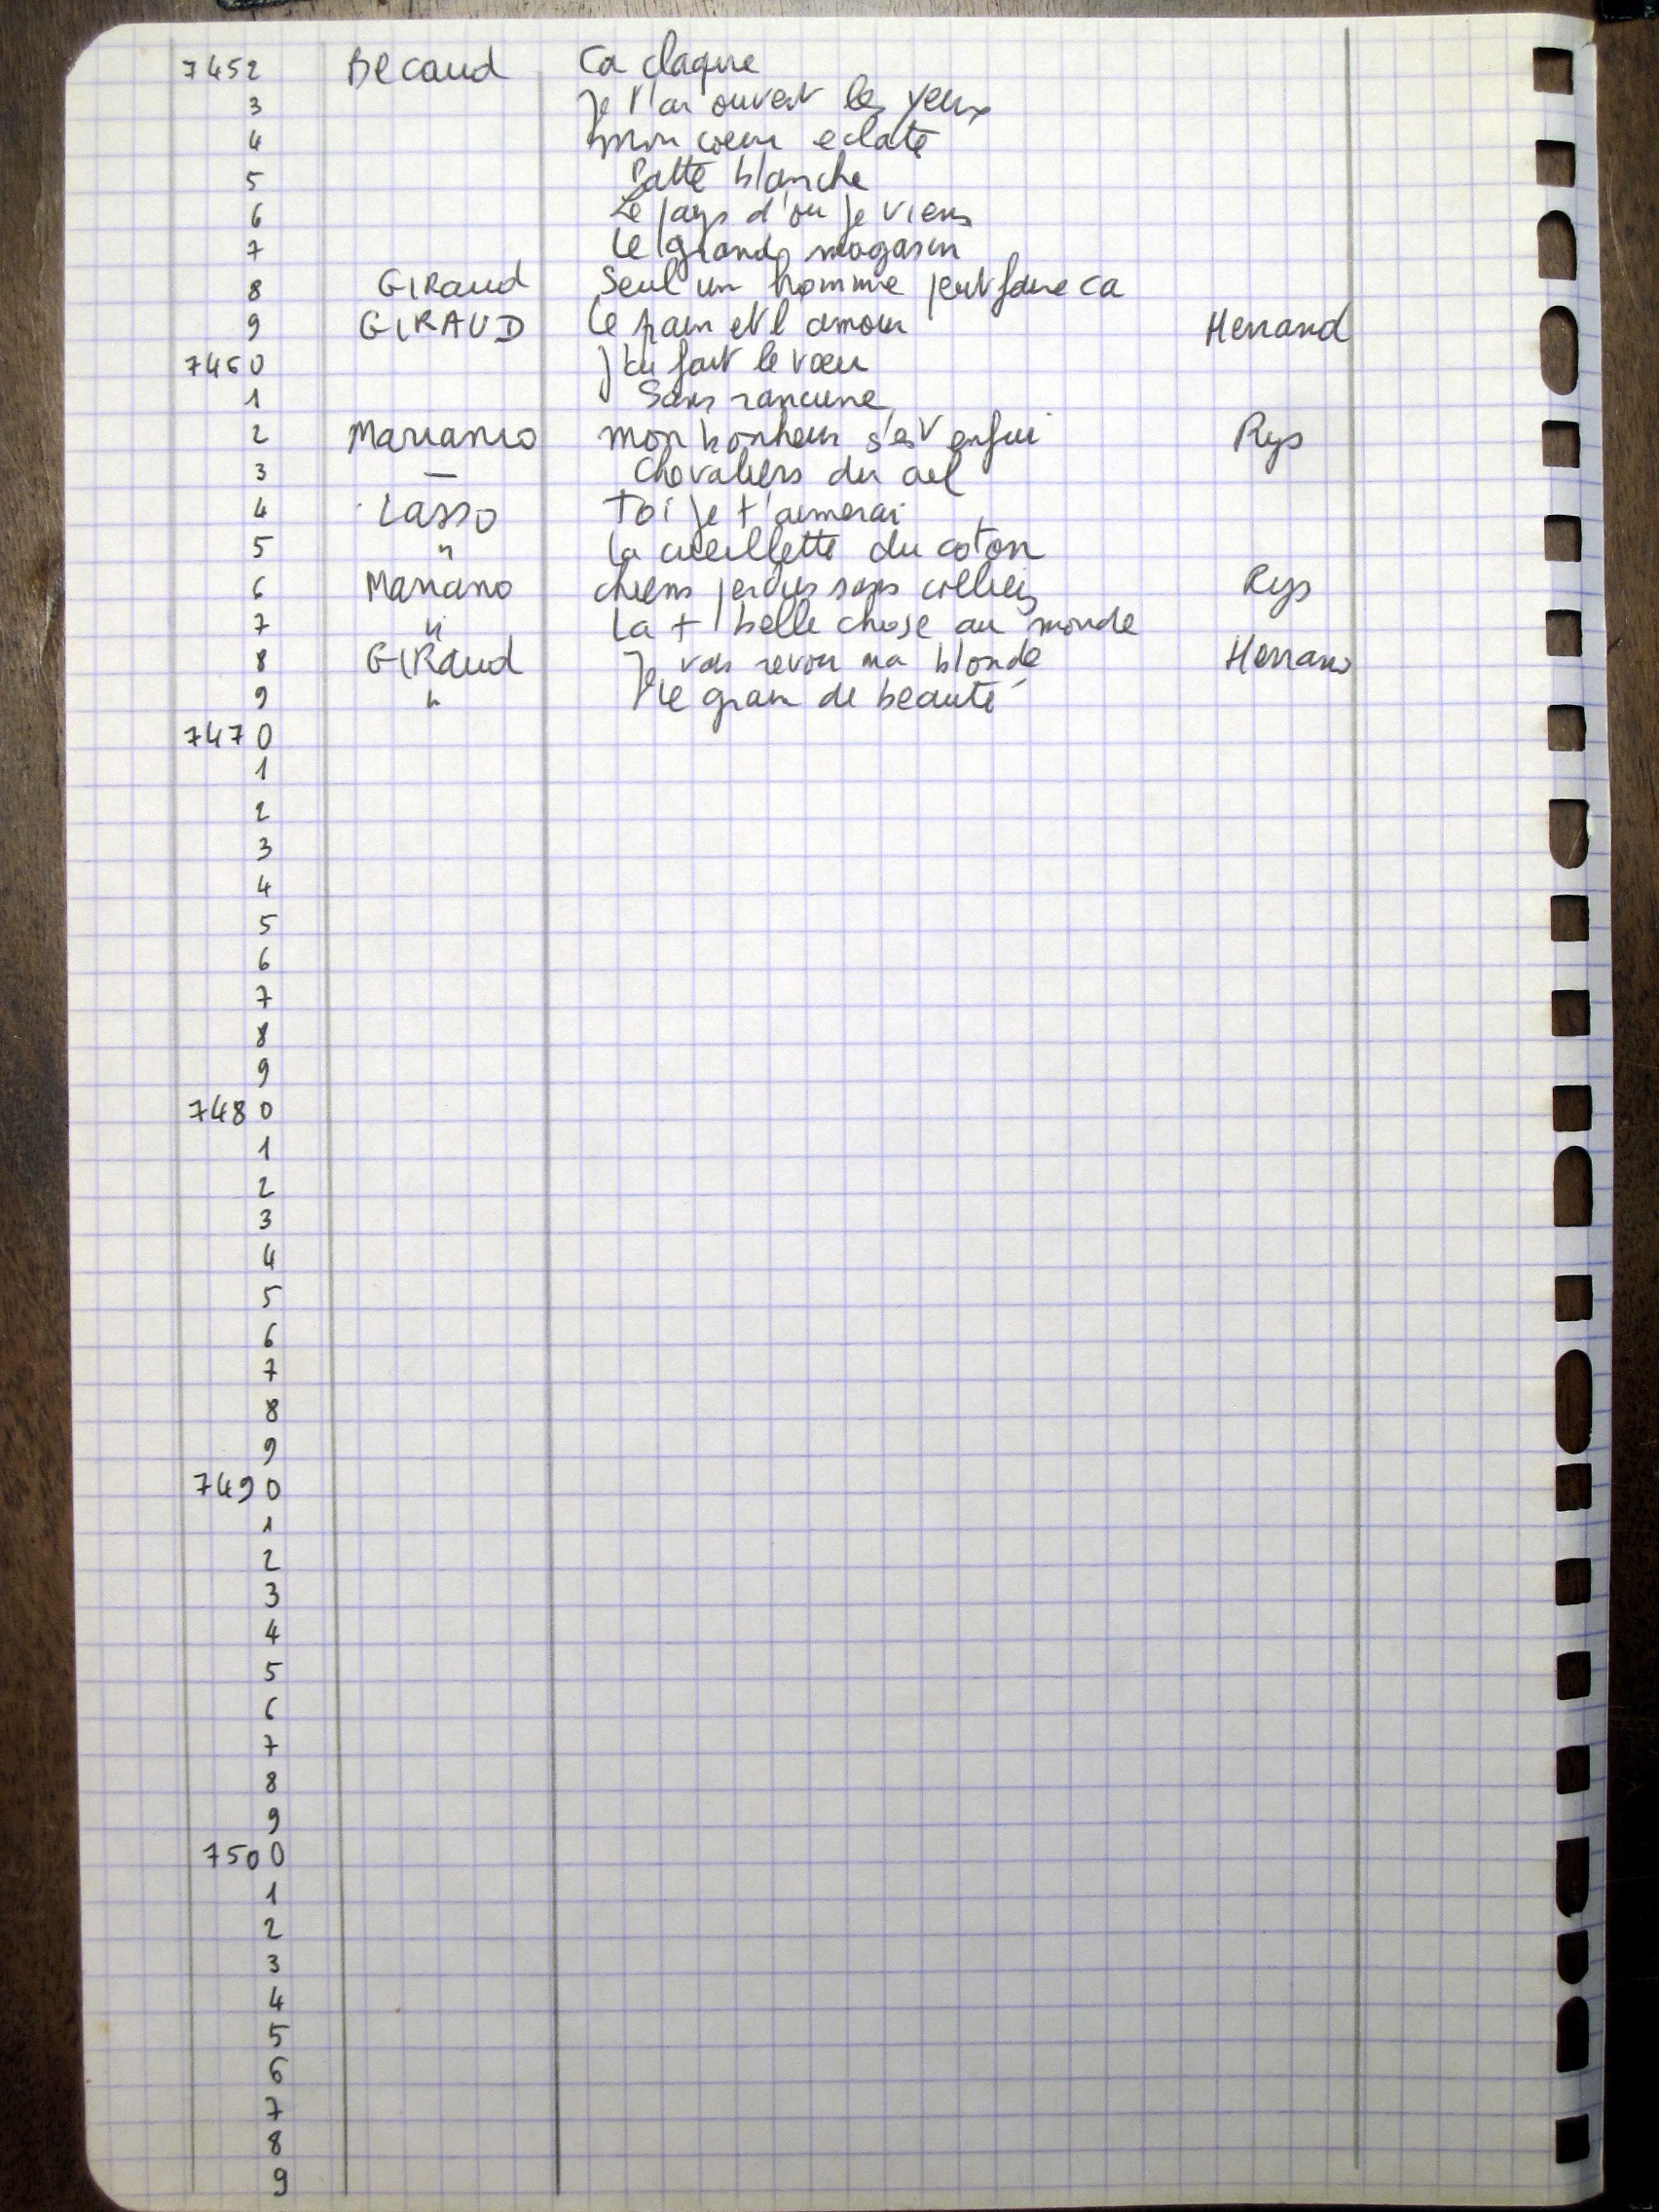 7452 Becaud Ca claque
3 Je t'ai ouvert les yeux
4 mon coeur eclate
5 Patte blanche
6 Le pays d'ou je viens
7 Le grands magasin
8 GIRaud Seul un homme peut faire ca
9 GIRAUD Le pain et l amour Herrand
7460 J'ai fait le vœu
1 Sans rancune
2 Mariano mon bonheur s'est enfui Rys
3 — Chevaliers du ciel
4 Lasso Toi je t'aimerai
5 " la cueillette du coton
6 Mariano chiens perdus sans colliers Rys
7 " La + belle chose au monde
8 GIRaud Je vais revoir ma blonde
9 " Le grain de beauté
7470
1
2
3
4
5
6
7
8
9
7480
1
2
3
4
5
6
7
8
9
7490
1
2
3
4
5
6
7
8
9
7500
1
2
3
4
5
6
7
8
9